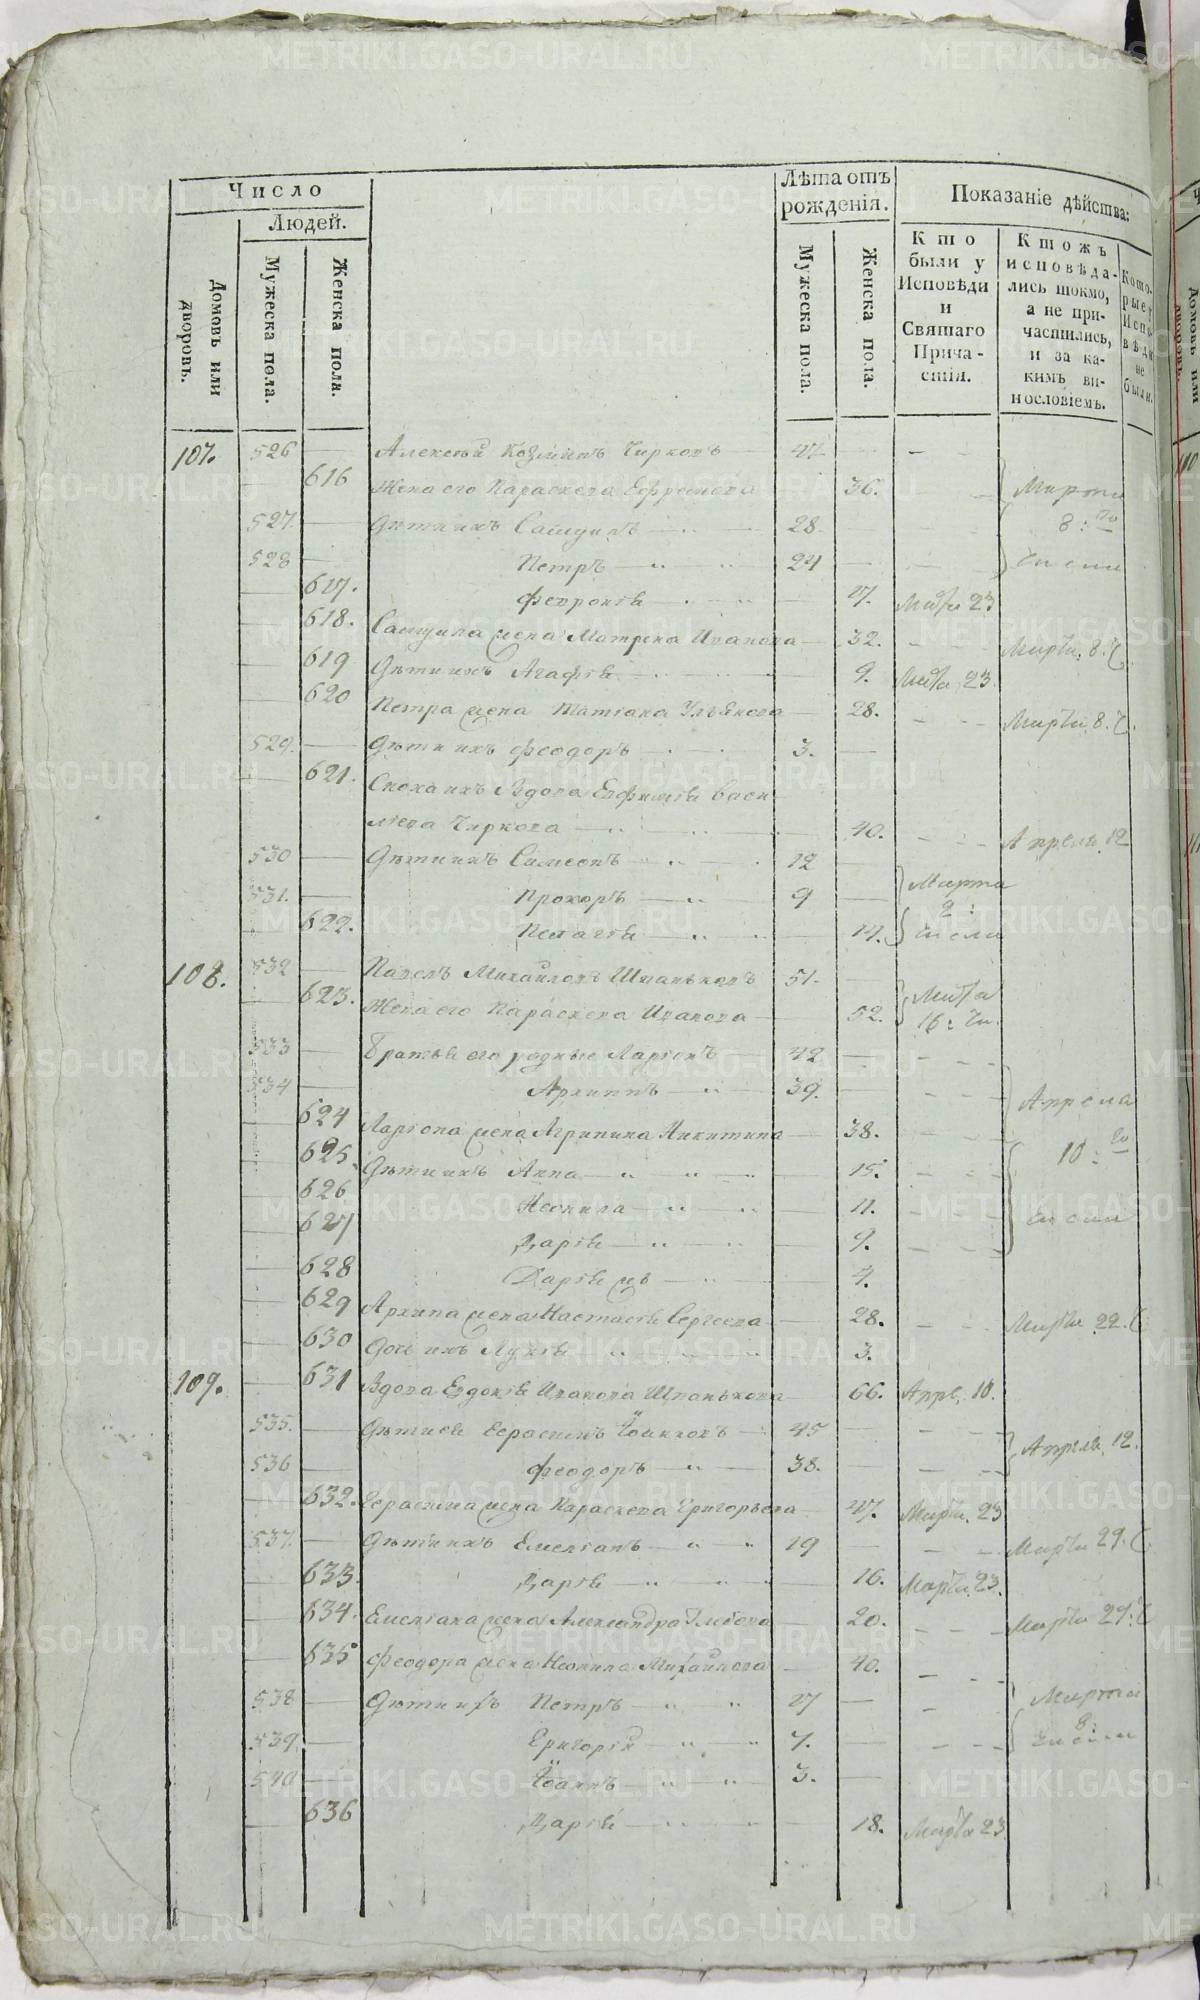 Число
Людей.
Домовъ или дворовъ.
Мужеска пола.
Женска пола.
Лѣта отъ рожденія.
Мужеска пола.
Женска пола.
Показаніе дѣйства:
Кто были у Исповѣди и Святаго Прича-стія.
Ктожъ исповѣда-лись токмо, а не при-частились, и за ка-кимъ ви-нословіемъ.
Кото-рые у Испо-вѣди не были.
107. 526 — Алексѣй Козминъ Чирковъ 47
616 Жена его Параскева Ефремова 36. Марта
527. — Дѣти ихъ Самуилъ 28 8: го
528 — Петръ 24 числа
617. Феврониѣ 17. Марта 23
618. Самуила жена Матрена Иванова 32. Марта 8. Ч
619 Дѣти ихъ Агафія 9. Марта 23.
620 Петра жена Татіана Ульянова 28. Марта 8. Ч.
529. — Дѣти ихъ Феодоръ 3.
621. Сноха ихъ Вдова Евфимія Васи
лѣева Чиркова 40. Апреля 12
530 — Дѣти ихъ Симеонъ 12
531. — Прохоръ 9 Марта
622. Пелагія 14. числа
108. 532 — Павелъ Михайловъ Шпаньковъ 51.
623. Жена его Параскева Иванова 52. Марта 16: Чи.
533 — Братья его родные Ларіонъ 42
534 — Архиппъ 39. Апреля
624 Ларіона жена Агрипина Никитина 38.
625. Дѣти ихъ Анна 15. 10: го
626 Неонила 11. числа
627 Дарія 9.
628 Дарія жъ 4.
629 Архипа жена Настасія Сергеева 28. Марта 22. Ч
630 Дочь ихъ Лукія 3.
109. 631 Вдова Евдокія Иванова Шпанькова 66. Апре. 10.
535. — Дѣти ея Герасимъ Іоанновъ 45
536 — Феодоръ 38. Апреля. 12.
632. Герасима жена Параскева Григорьева 47. Марта. 23
537. — Дѣти ихъ Емеліанъ 19 Марта 29. Ч
633. Дарія 16. Марта 23.
634. Емеліана жена Александра Глебова 20. Марта 29. Ч
635 Феодора жена Неонила Михайлова 40.
538 — Дѣти ихъ Петръ 17 Марта
539. — Григорій 7. 8: числа
540 — Іоаннъ 3.
636 Дарія 18. Марта 23
METRIKI.GASO-URAL.RU